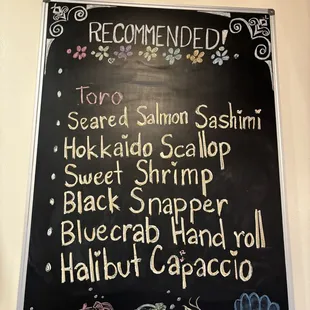 RECOMMENDED!
· Toro
· Seared Salmon Sashimi
· Hokkaido Scallop
· Sweet Shrimp
· Black Snapper
· Bluecrab Hand roll
· Halibut Capaccio